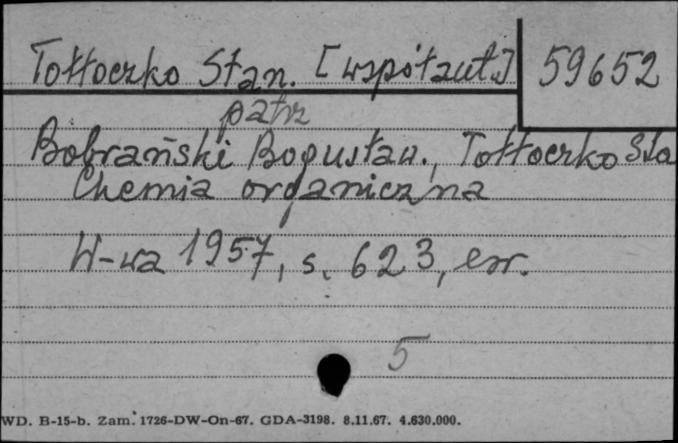 Tołłoczko Stan. [współaut.]
59652
patrz
Bobrański Bogusław., Tołłoczko Sta
Chemia organiczna
W-wa 1957, s. 623, err.
5
WD. B-15-b. Zam. 1726-DW-On-67. GDA-3198. 8.11.67. 4.630.000.